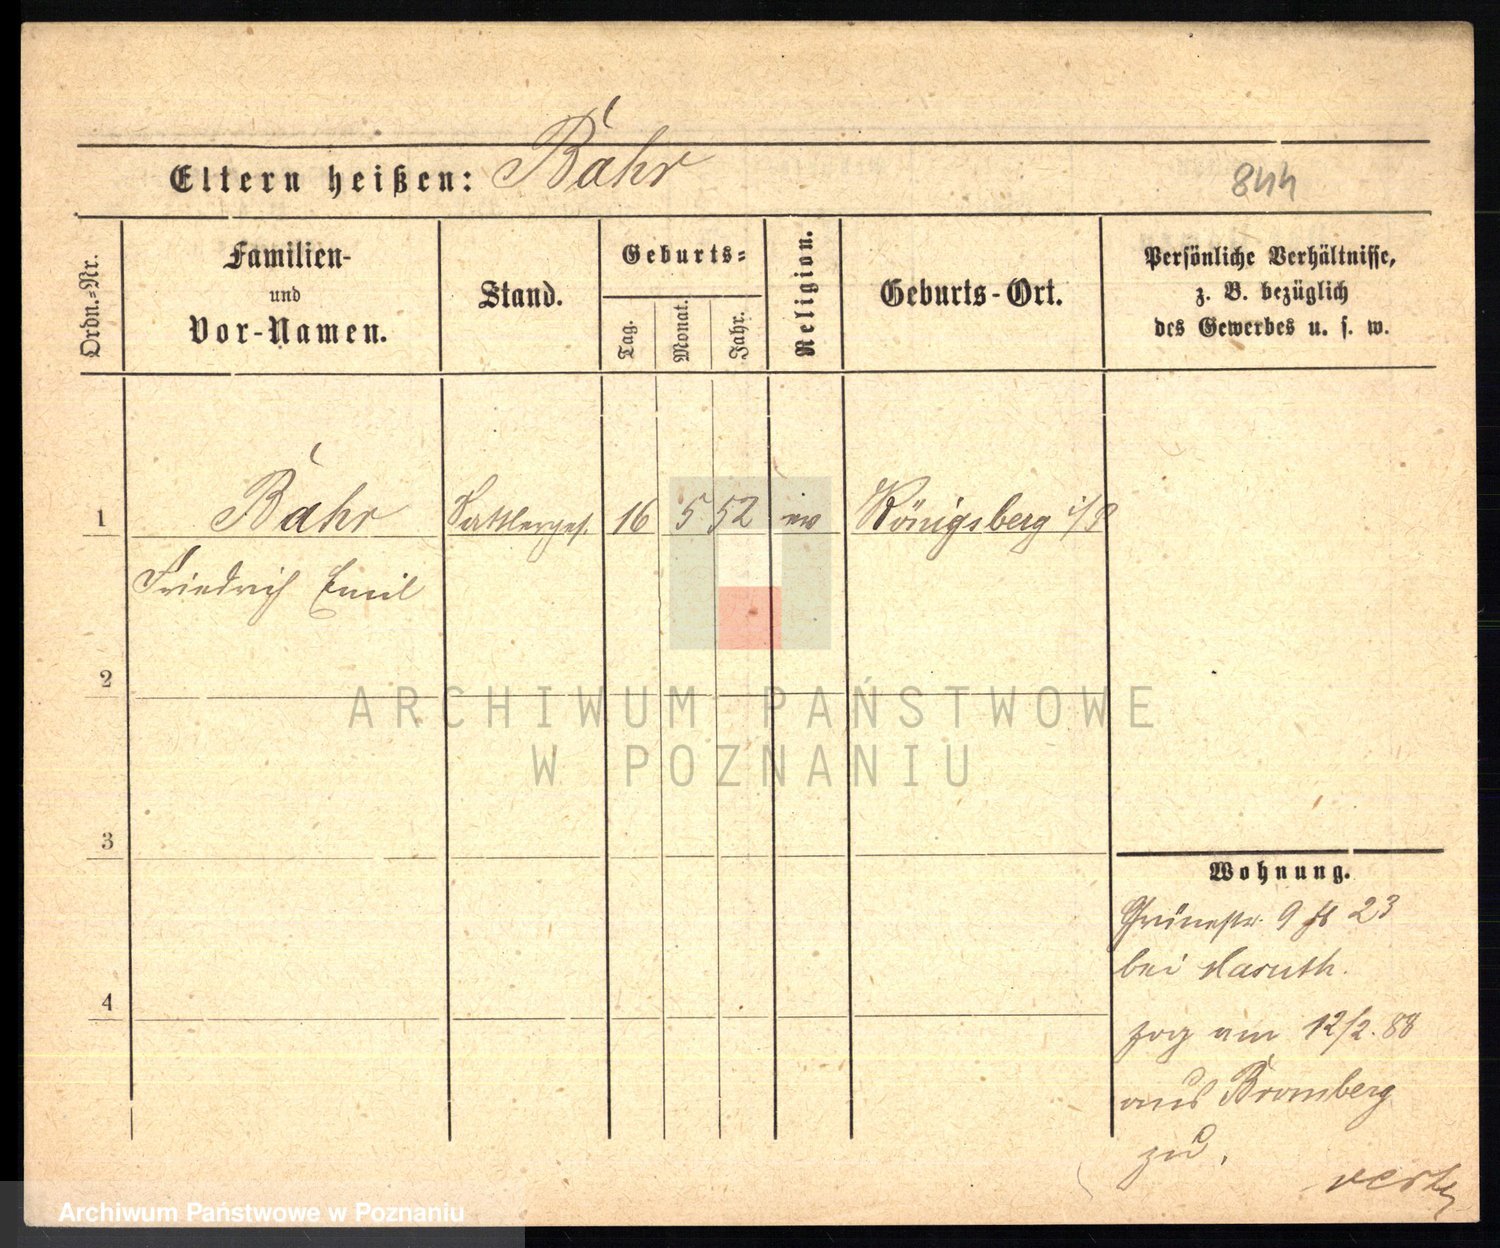 Eltern heißen: Bahr
844
Ordn.=Nr.
Familien-
und
Vor-Namen.
Stand.
Geburts=
Tag.
Monat.
Jahr.
Religion.
Geburts-Ort.
Persönliche Verhältnisse,
z. B. bezüglich
des Gewerbes u. s. w.
1 Bahr Sattlerges. 16 5 52 ev Königsberg i/P
Friedrich Emil
2
3
4
Wohnung.
Grünestr. 9 23
bei
zog am 12/2. 88
aus Bromberg
zu.
ARCHIWUM PAŃSTWOWE
W POZNANIU
Archiwum Państwowe w Poznaniu